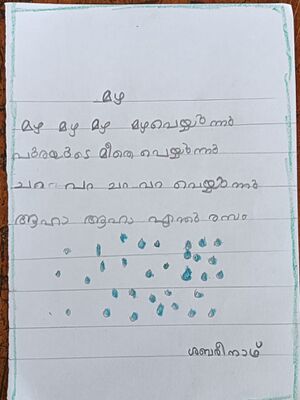 മഴ
മഴ മഴ മഴ മഴപെയ്യുന്നു
പുരയുടെ മീതെ പെയ്യുന്നു
ചറ പറ ചറ പറ പെയ്യുന്നു
ആഹാ ആഹാ എന്തു രസം
ശബരീനാഥ്